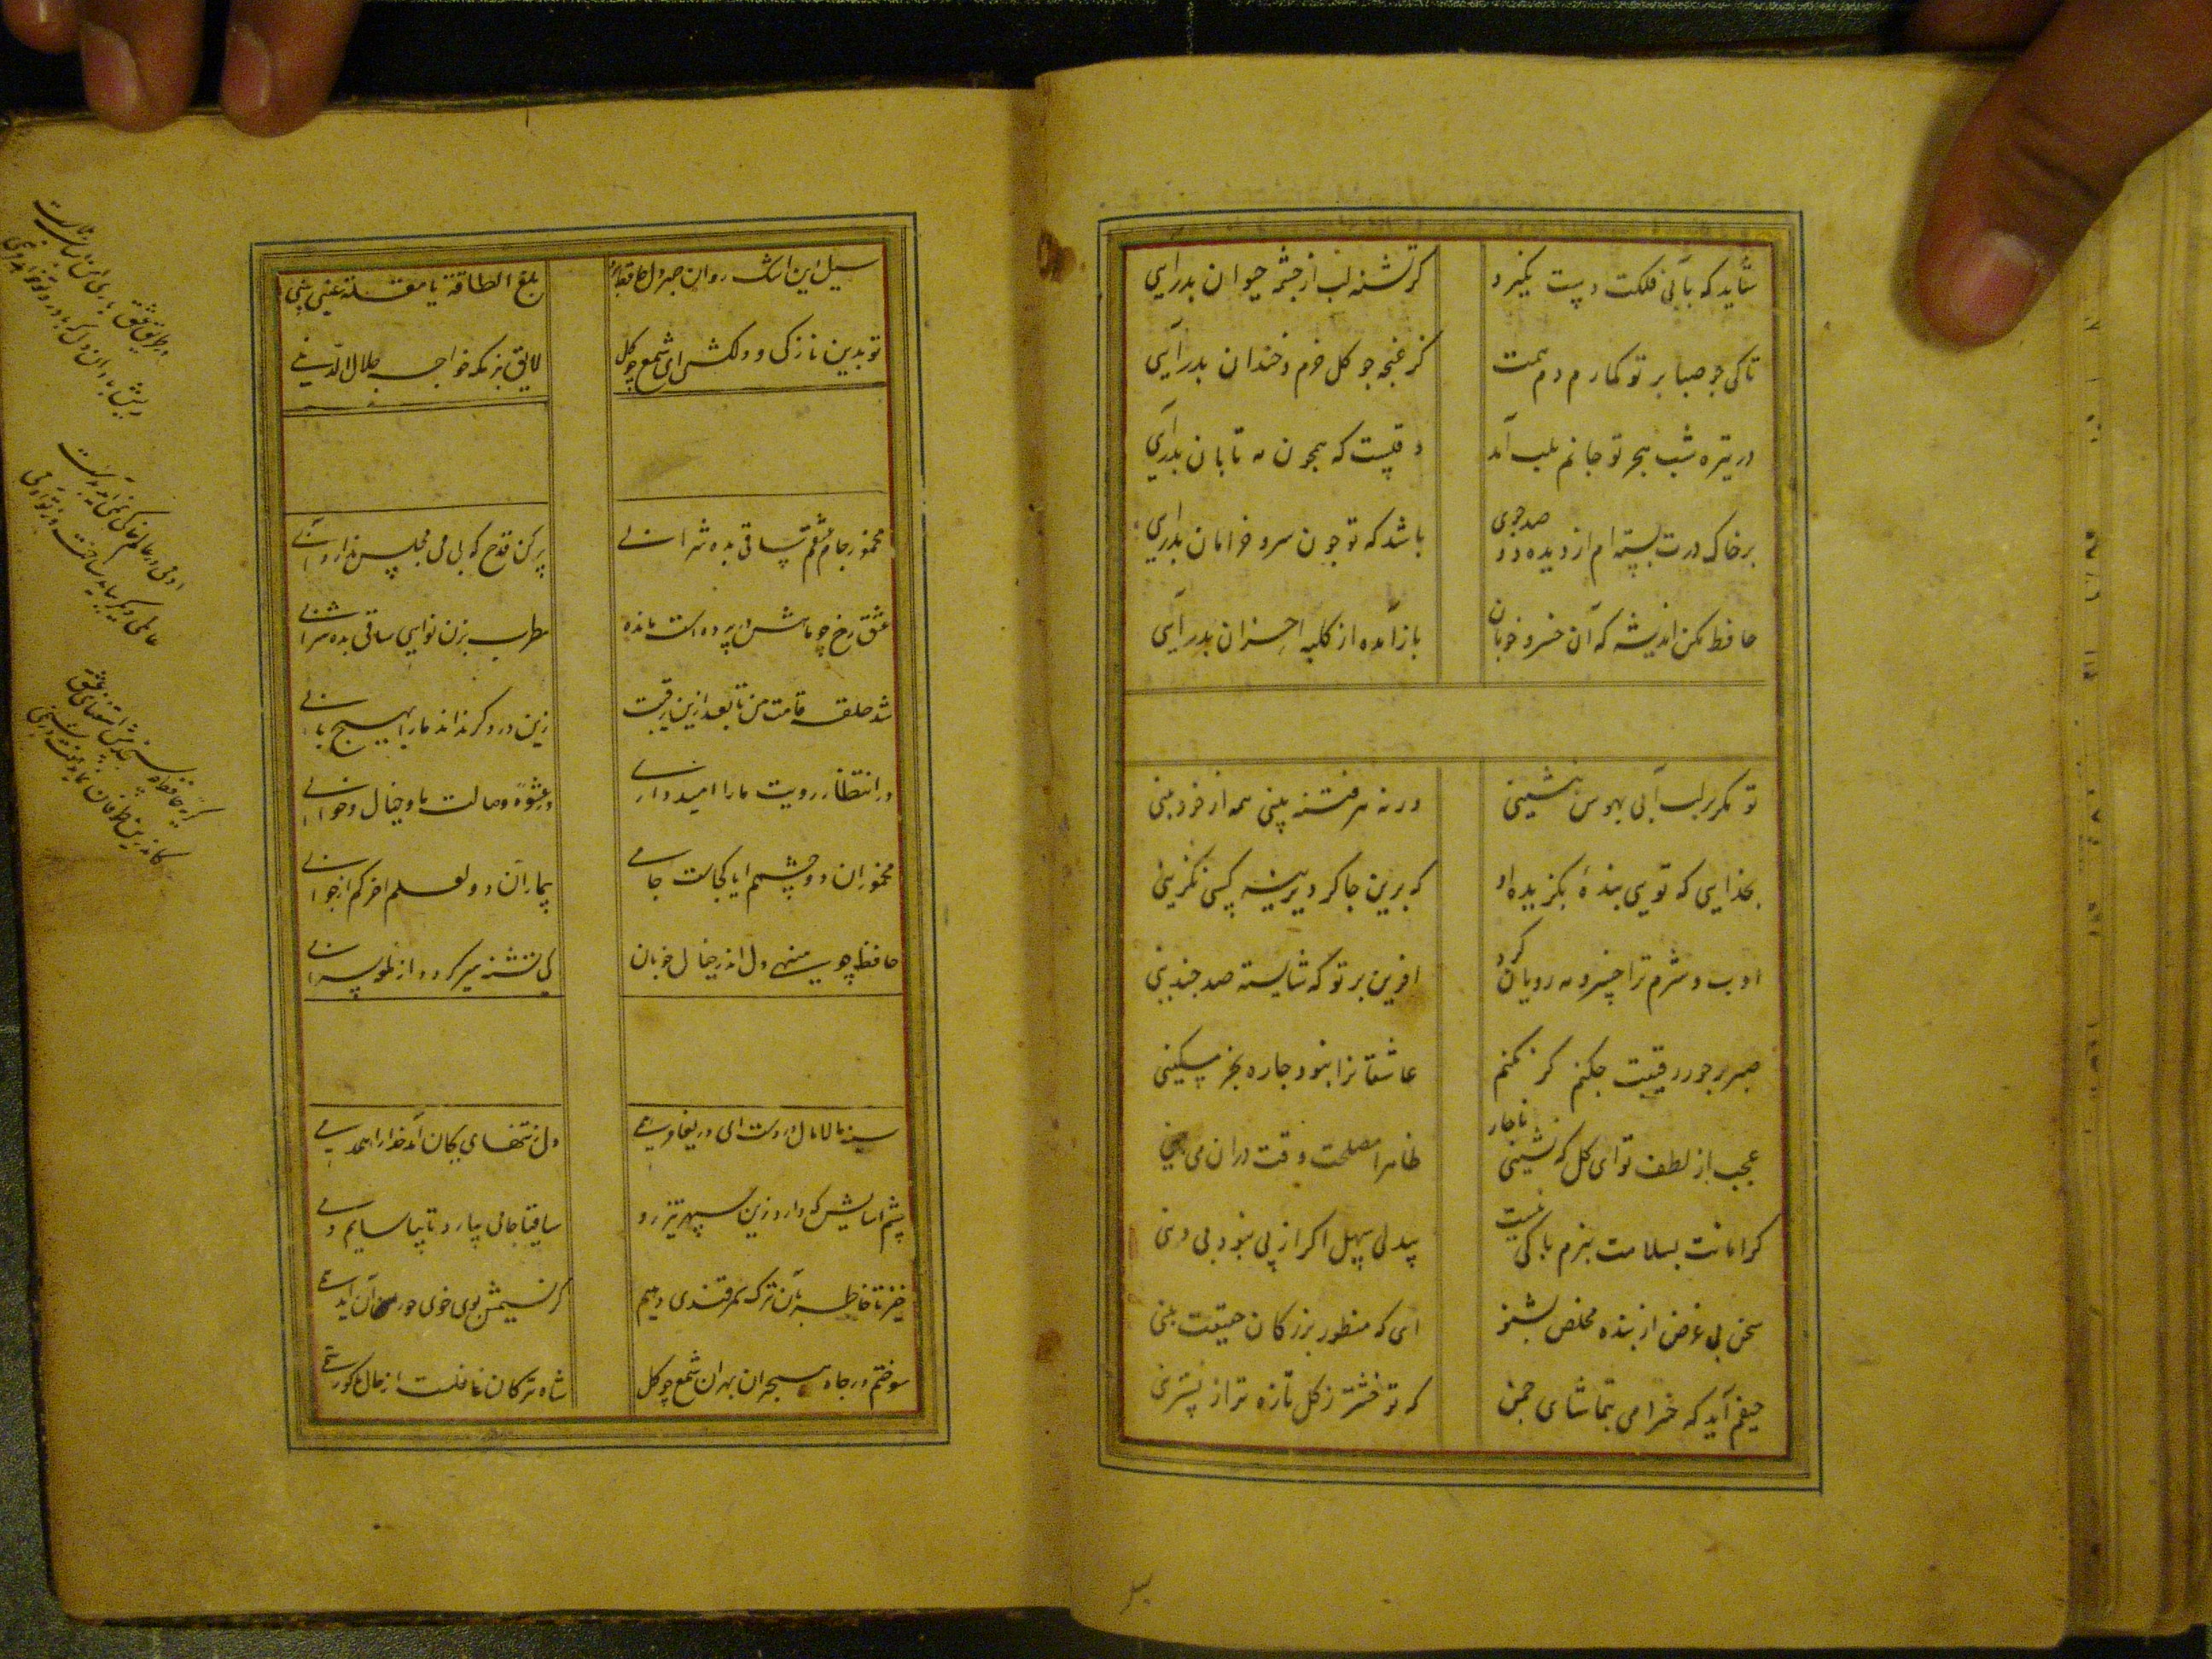 شاید که بآبی فلکت دست نکیرد
کر تشنه لب از چشمه حیوان بدرآیی
تا کی چو صبا بر تو کمارم دم همت
کز غنچه چو کل خرم و خندان بدرآیی
در تیره شب هجر تو جانم بلب آمد
وقتست که همچون مه تابان بدرآیی
بر خاک درت بسته‌ام از دیده دو صد جوی
باشد که تو چون سرو خرامان بدرآیی
حافظ مکن اندیشه که آن خسرو خوبان
بازآمده از کلبه احزان بدرآیی
تو مکر بر لب آبی بهوس بنشینی
ورنه هر فتنه بینی همه از خود بینی
بخدایی که تویی بنده بکزیده او
که برین چاکر دیرینه کسی نکزینی
ادب و شرم ترا خسرو مه رویان کرد
آفرین بر تو که شایسته صد چندینی
صبر بر جور رقیبت چکنم کر نکنم
عاشقانرا نبود چاره بجز مسکینی
عجب از لطف تو ای کل که نشینی با خار
ظاهرا مصلحت وقت در آن می بینی
کر امانت بسلامت ببرم باکی نیست
بیدلی سهل اکر از پی نبود بی دینی
سخن بی غرض از بنده مخلص بشنو
ای که منظور بزرکان حقیقت بینی
حیفم آید که خرامی بتماشای چمن
که تو خشتر ز کل تازه‌تر از نسترنی
سیل این اشک روان صبر دل حافظ برد
بلغ الطاقة یا مقلة عینی بینی
تو بدین نازکی و دلکشی ای شمع چوکل
لایق بزمکه خواجه جلال‌الدینی
مخمور جام عشقم ساقی بده شرابی
پر کن قدح که بی می مجلس ندارد آبی
عشق رخ چو ماهش در پرده راست ناید
مطرب بزن نوایی ساقی بده شرابی
شد حلقه قامت من تا بعد ازین رقیبت
زین در دکر نراند ما را بهیچ بابی
در انتظار رویت ما را امیدواری
در عشوه وصالت ما و خیال و خوابی
مخمور آن دو چشمم آیا کجاست جامی
بیمار آن دو لعلم آخر کم از جوابی
حافظ چو می‌نهی دل اندر خیال خوبان
کی تشنه سیر کردد از لمع سرابی
سینه مالامال دردست ای دریغا مرهمی
دل ز تنهایی بجان آمد خدا را همدمی
چشم آسایش که دارد زین سپهر تیزرو
ساقیا جامی بیار تا بیاسایم دمی
خیز تا خاطر بآن ترک سمرقندی دهیم
کز نسیمش بوی خوی
سوختم در چاه هجران بهر آن شمع چوکل
شاه ترکان غافلست از حال ما کو رستمی
در طریق عشق
ریش باد آن دل که با درد تو خواهد مرهمی
آدمی در عالم خاکی نمی‌آید بدست
عالمی دیکر بباید ساخت وز نو آدمی
کریه حافظ چه سنجد پیش استغنای عشق